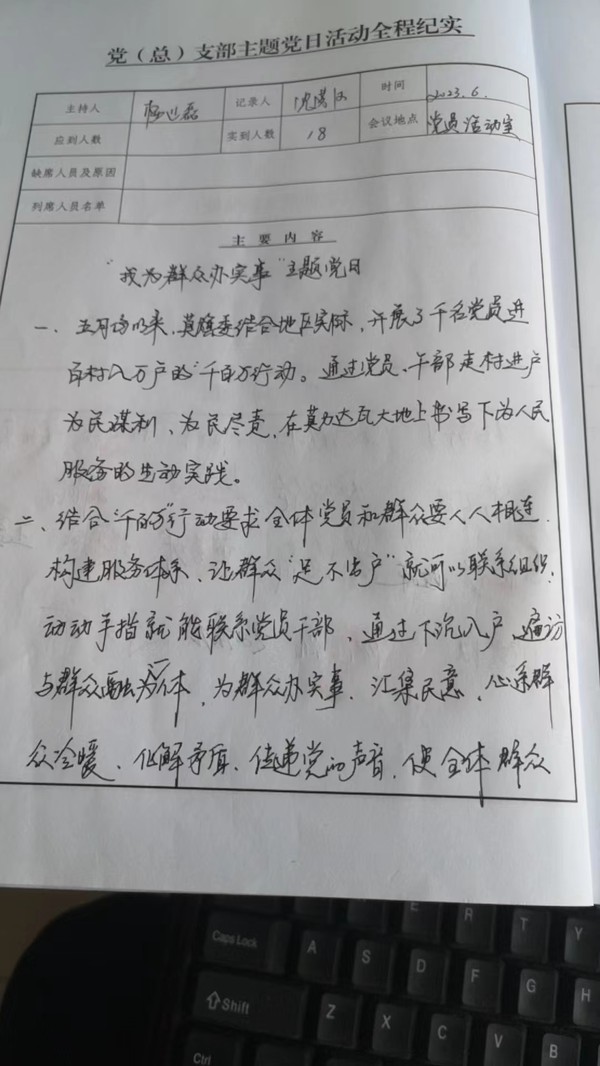 党（总）支部主题党日活动全程纪实
主持人 记录人 时间 2023.6.
应到人数 实到人数 18 会议地点 党员活动室
缺席人员及原因
列席人员名单
主要内容
“我为群众办实事”主题党日
一、五月份以来，莫旗委结合地区实际，开展了千名党员进
百村入万户的“千百万行动。通过党员、干部走村进户
为民谋利、为民尽责，在莫力达瓦大地上书写下为人民
服务的生动实践。
二、结合“千百万”行动要求全体党员和群众要人人相连，
构建服务体系，让群众“足不出户”就可以联系组织，
动动手指就能联系党员干部，通过下沉入户，遍访
与群众融为一体，为群众办实事，汇集民意，心系群
众冷暖、化解矛盾、传递党的声音，使全体群众
Caps Lock A S D F G
E R T Y
Shift Z X C V B H
Ctrl